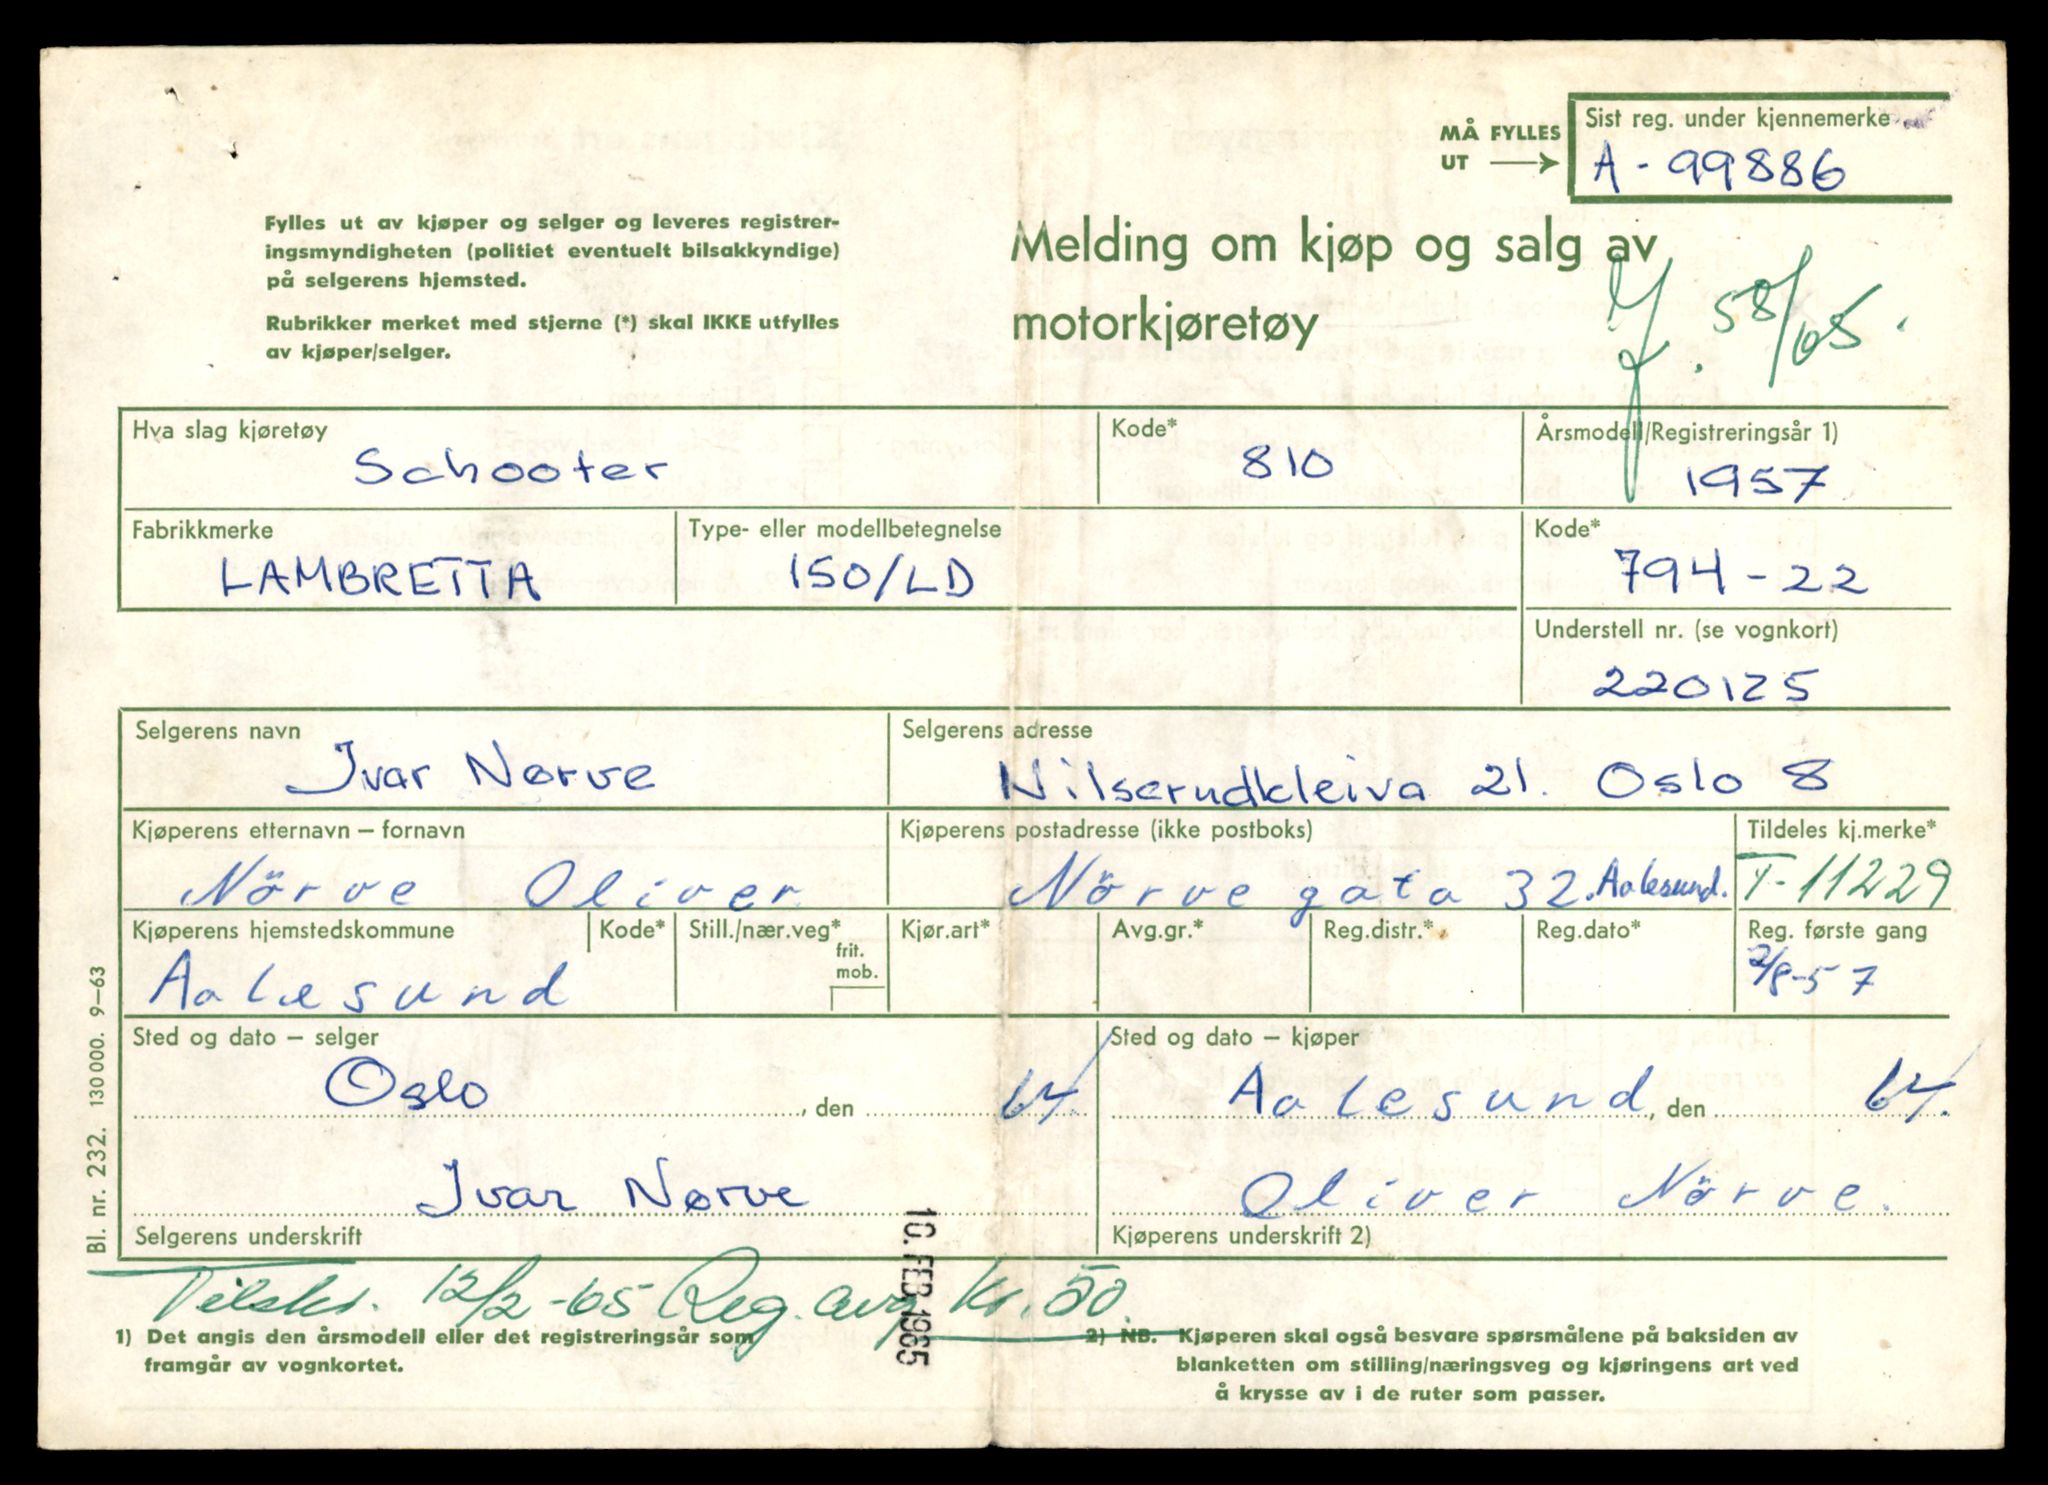 MÅ FYLLES UT
Sist reg. under kjennemerke
A - 99886
Fylles ut av kjøper og selger og leveres registrer-
ingsmyndigheten (politiet eventuelt bilsakkyndige)
på selgerens hjemsted.
Rubrikker merket med stjerne (*) skal IKKE utfylles
av kjøper/selger.
Melding om kjøp og salg av
motorkjøretøy
58/65.
Hva slag kjøretøy
Schooter
Kode*
810
Årsmodell/Registreringsår 1)
1957
Fabrikkmerke
LAMBRETTA
Type- eller modellbetegnelse
150/LD
Kode*
794-22
Understell nr. (se vognkort)
220125
Selgerens navn
Ivar Nørve
Selgerens adresse
Nilserudkleiva 21. Oslo 8
Kjøperens etternavn – fornavn
Nörve Oliver
Kjøperens postadresse (ikke postboks)
Nörve gata 32. Aalesund.
Tildeles kj.merke*
T-11229
Kjøperens hjemstedskommune
Aalesund
Kode*
Still./nær.veg*
frit.
mob.
Kjør.art*
Avg.gr.*
Reg.distr.*
Reg.dato*
Reg. første gang
2/8-57
Sted og dato – selger
Oslo, den 64.
Sted og dato – kjøper
Aalesund, den 64.
Ivar Nørve
Selgerens underskrift
Oliver Nörve.
Kjøperens underskrift 2)
10. FEB 1965
Tilskr. 12/2-65 Reg. avg. Kr. 50.
1) Det angis den årsmodell eller det registreringsår som
framgår av vognkortet.
2) NB. Kjøperen skal også besvare spørsmålene på baksiden av
blanketten om stilling/næringsveg og kjøringens art ved
å krysse av i de ruter som passer.
Bl. nr. 232. 130 000. 9–63